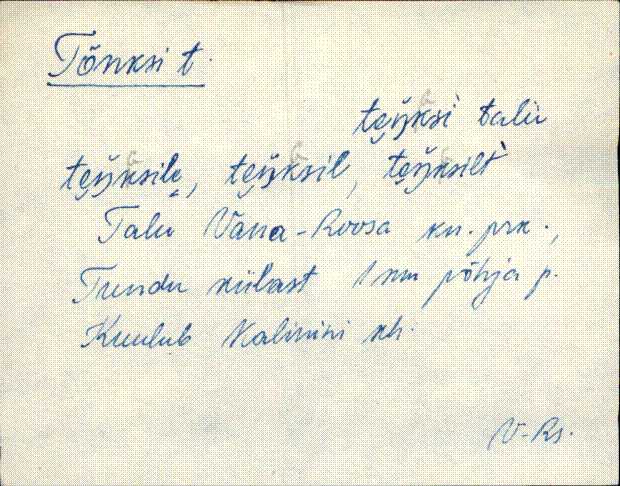 Tõnksi t.
te̮ŋ̆ksi talu
te̮ŋ̆ksile̮, te̮ŋ̆ksil, te̮ŋ̆ksilt
Talu Vana-Roosa kn. prk.,
külast 1 km põhja p.
Kuulub Kalinini kh.
V-Rs.